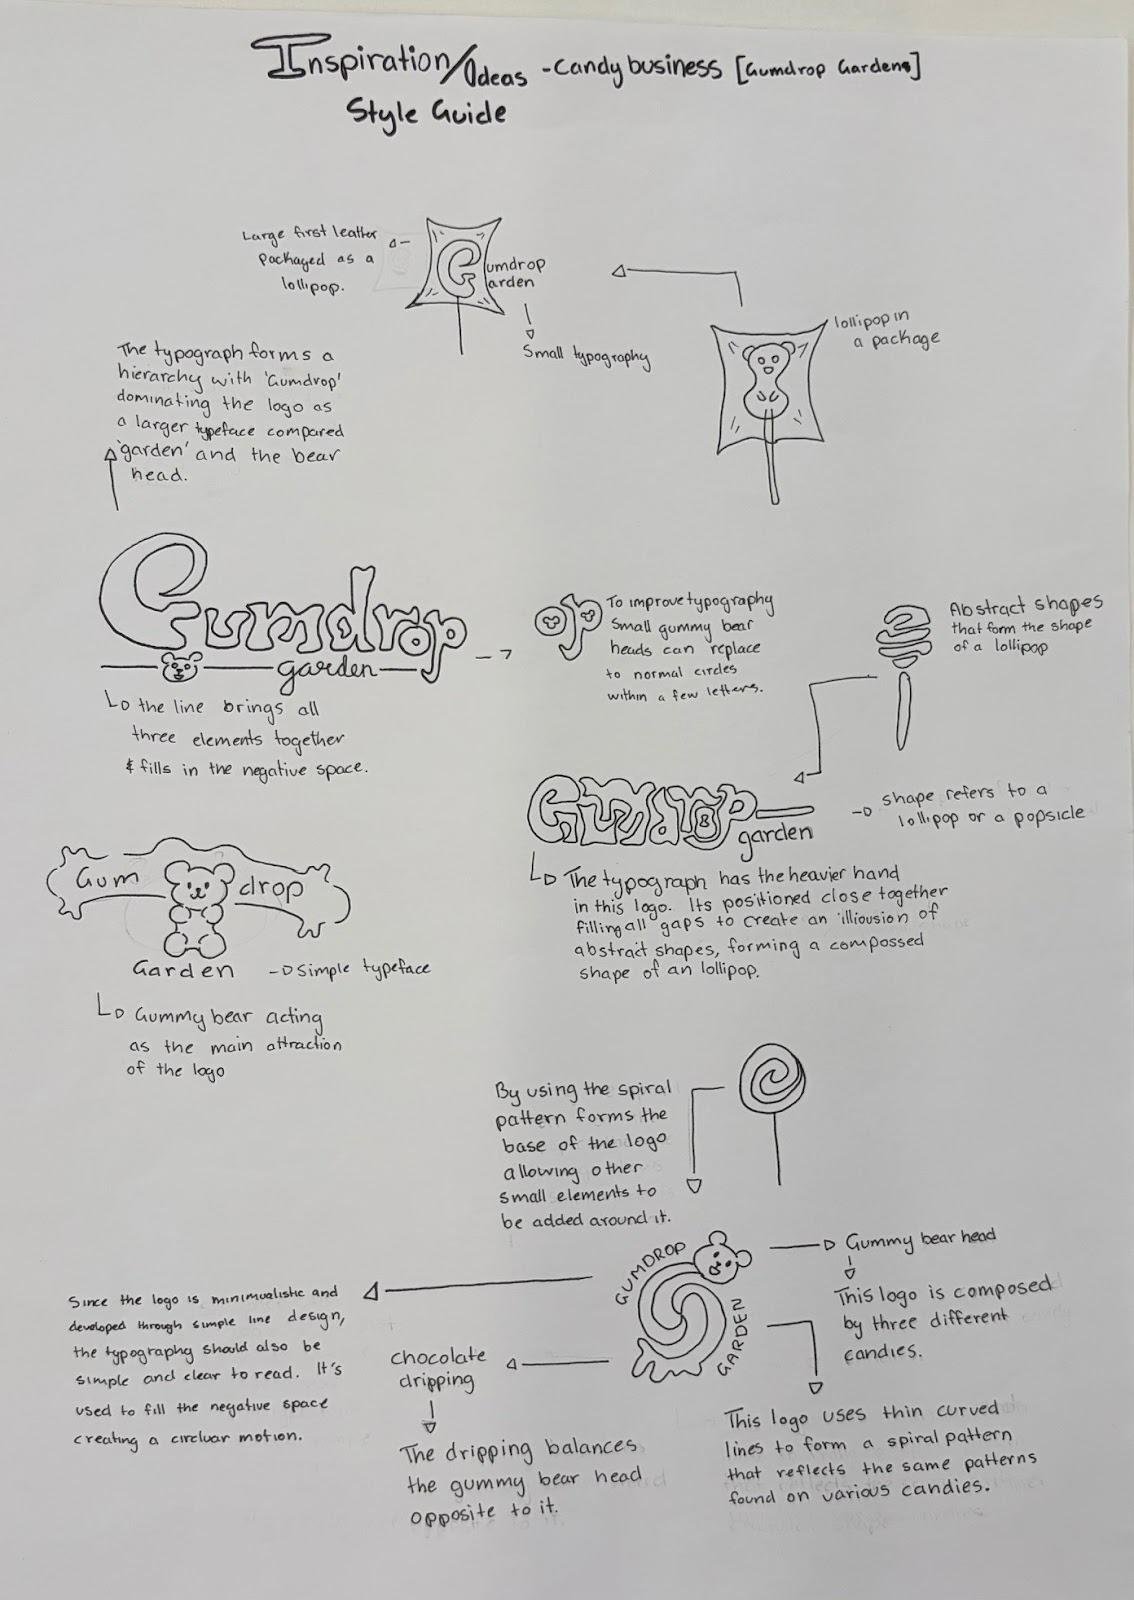 Inspiration/Ideas - Candy business [Gumdrop Gardens]
Style Guide
Large first leatter
packaged as a
lollipop.
Gumdrop
Garden
Small typography
lollipop in
a package
The typograph forms a
hierarchy with 'Gumdrop'
dominating the logo as
a larger typeface compared
'garden' and the bear
head.
Gumdrop
garden
the line brings all
three elements together
& fills in the negative space.
op
To improve typography
Small gummy bear
heads can replace
to normal circles
within a few letters.
Abstract shapes
that form the shape
of a lollipop
Gumdrop
garden
shape refers to a
lollipop or a popsicle
The typograph has the heavier hand
in this logo. Its positioned close together
filling all gaps to create an illiousion of
abstract shapes, forming a compossed
shape of an lollipop.
Gum drop
Garden
simple typeface
Gummy bear acting
as the main attraction
of the logo
By using the spiral
pattern forms the
base of the logo
allowing other
small elements to
be added around it.
GUMDROP
GARDEN
Gummy bear head
This logo is composed
by three different
candies.
Since the logo is minimualistic and
developed through simple line design,
the typography should also be
simple and clear to read. It's
used to fill the negative space
creating a circluar motion.
chocolate
dripping
The dripping balances
the gummy bear head
opposite to it.
This logo uses thin curved
lines to form a spiral pattern
that reflects the same patterns
found on various candies.